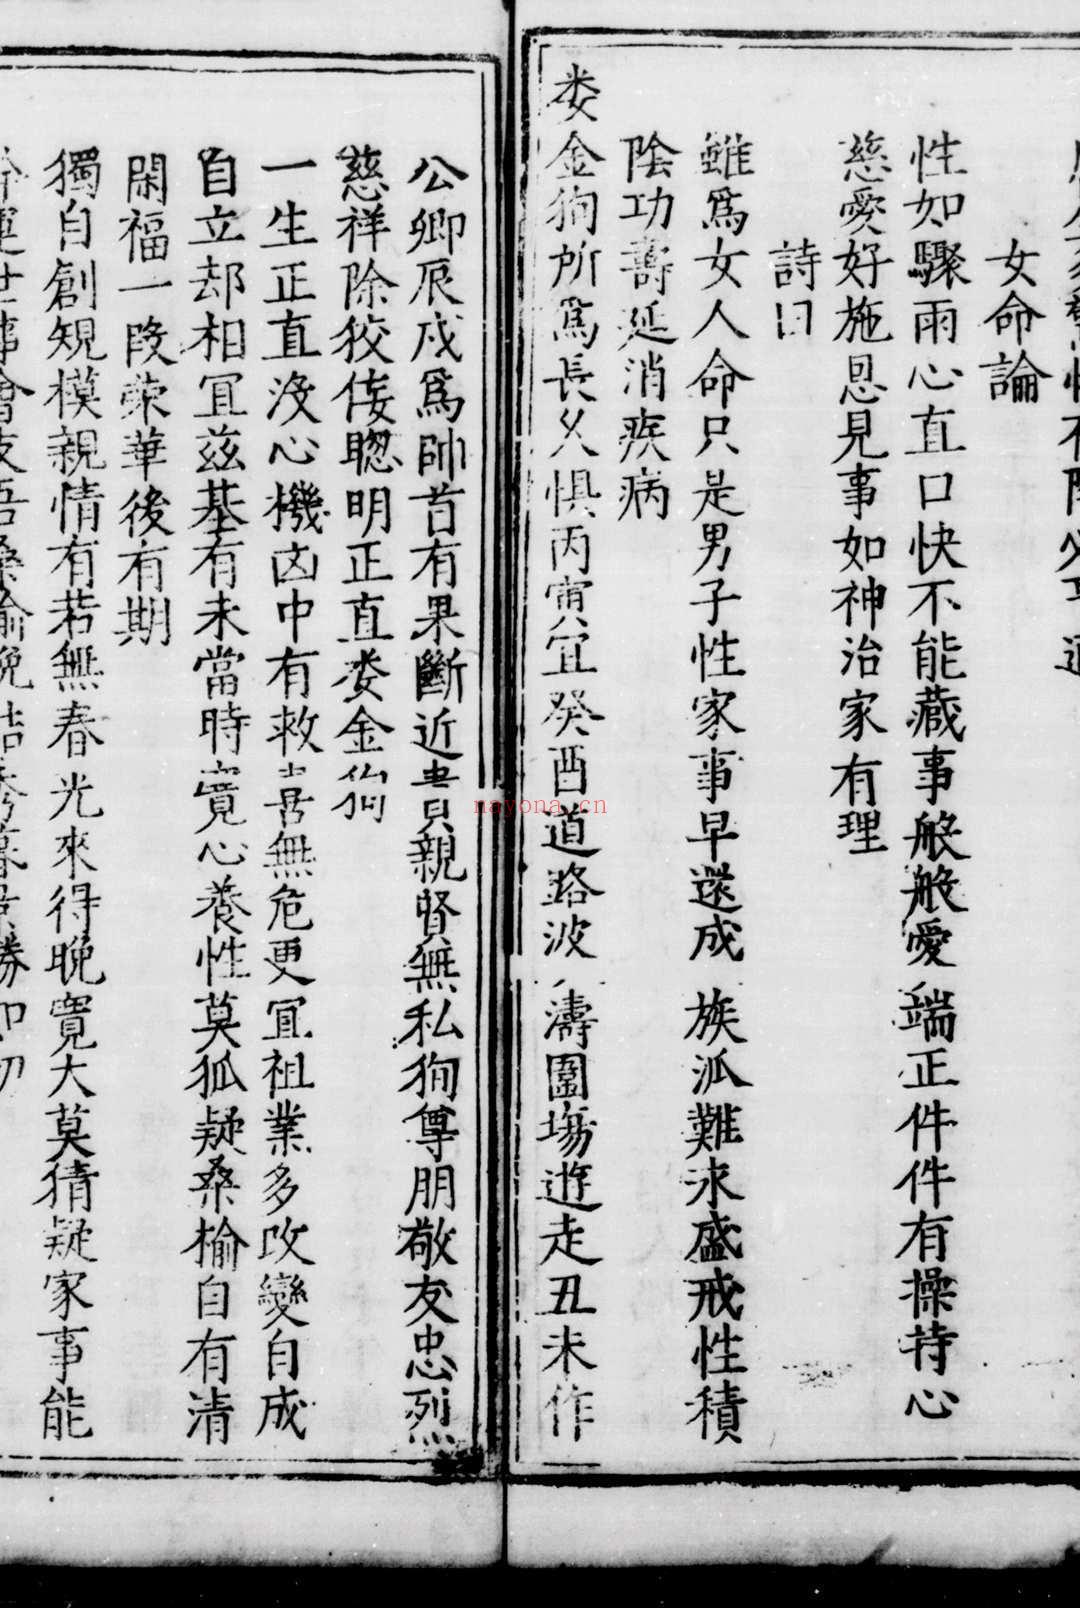 女命論
性如驟雨心直口快不能藏事般般愛端正件件有操持心
慈愛好施恩見事如神治家有理
詩曰
雖爲女人命只是男子性家事早還成族派難求盛戒性積
陰功壽延消疾病
娄金狗所爲長久惧丙寅宜癸酉道路波濤圍塲遊走丑未作
公卿辰戌爲帥首有果斷近貴親賢無私狥尊朋敬友忠烈
慈祥除狡佞聦明正直娄金狗
一生正直没心機凶中有救喜無危更冝祖業多改變自成
自立却相冝兹基有未當時寬心養性莫狐疑桑榆自有清
閑福一段荣華後有期
獨自創規模親情有若無春光來得晚寛大莫猜疑家事能
nayona.cn